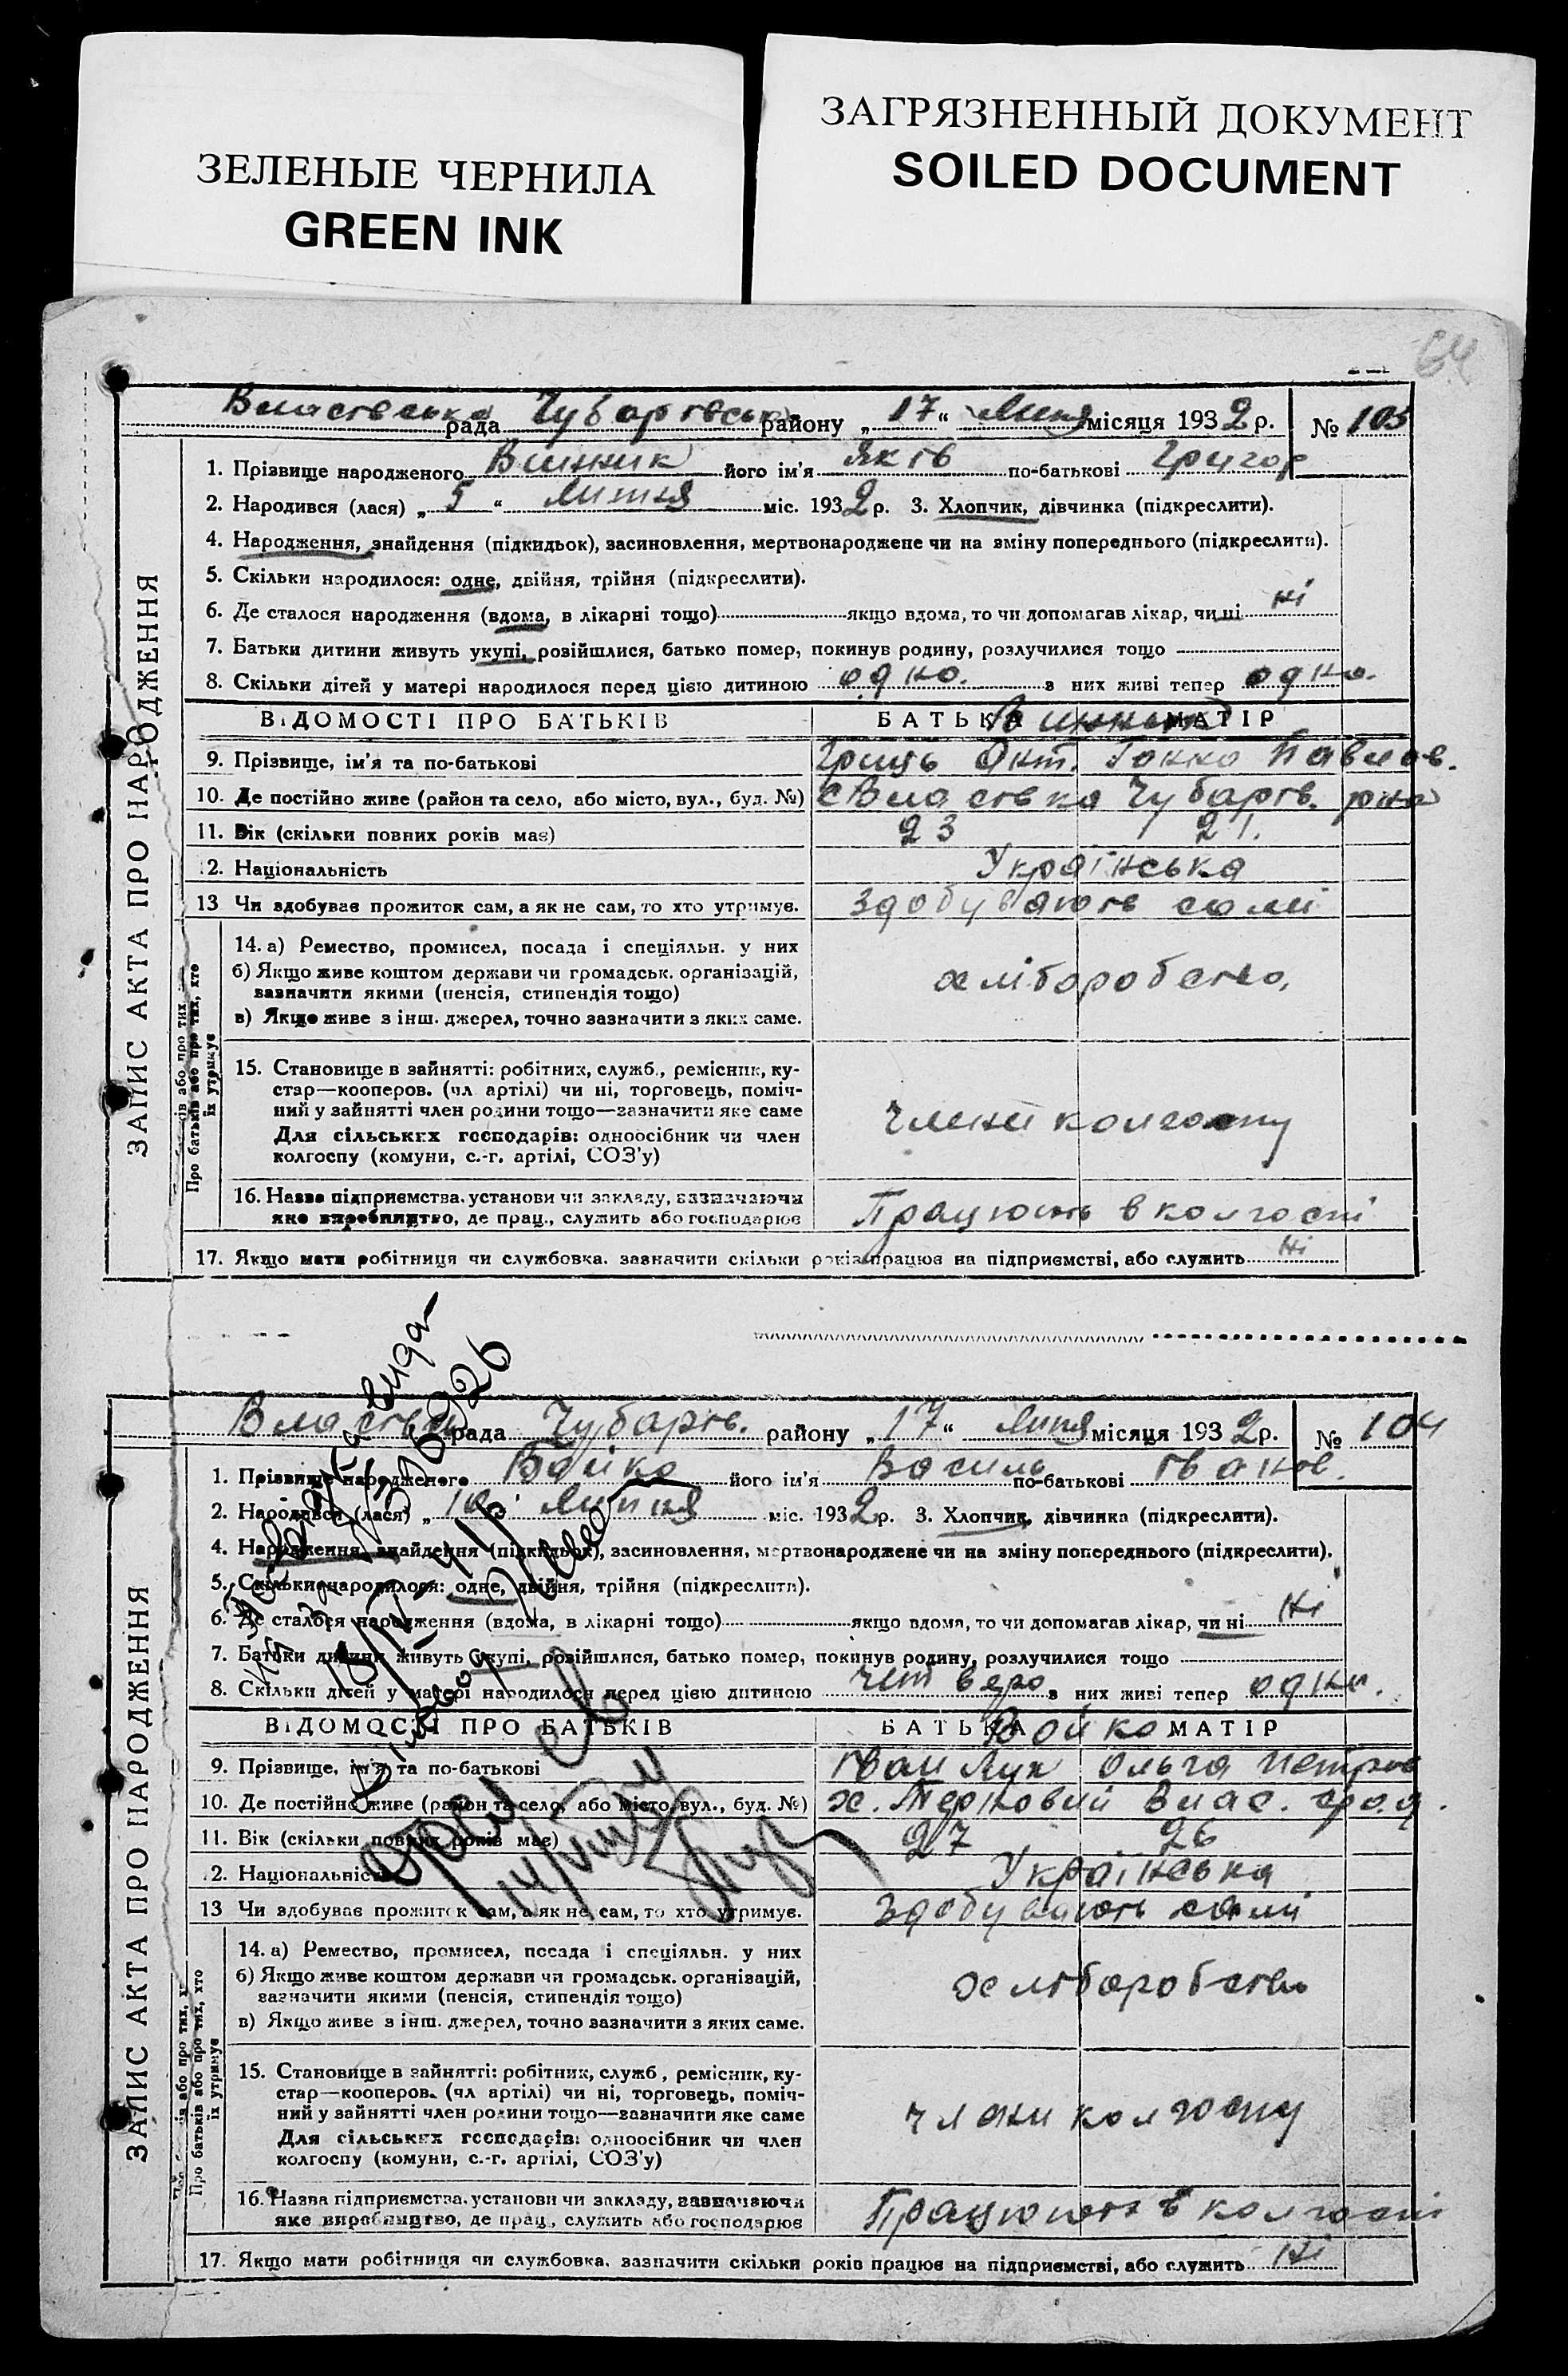 ЗЕЛЕНЫЕ ЧЕРНИЛА
GREEN INK
ЗАГРЯЗНЕННЫЙ ДОКУМЕНТ
SOILED DOCUMENT
64
ЗАПИС АКТА ПРО НАРОДЖЕННЯ
Власівська рада Чубарівськ району „17“ липня місяця 1932 р. № 103
1. Прізвище народженого Винник його ім'я Яків по-батькові Григор
2. Народився (лася) „5“ липня міс. 1932 р. 3. Хлопчик, дівчинка (підкреслити).
4. Народження, знайдення (підкидьок), засиновлення, мертвонароджене чи на зміну попереднього (підкреслити).
5. Скільки народилося: одне, двійня, трійня (підкреслити).
6. Де сталося народження (вдома, в лікарні тощо) якщо вдома, то чи допомагав лікар, чи ні ні
7. Батьки дитини живуть укупі, розійшлися, батько помер, покинув родину, розлучилися тощо
8. Скільки дітей у матері народилося перед цією дитиною одно. з них живі тепер одно.
ВІДОМОСТІ ПРО БАТЬКІВ БАТЬКА МАТІР
9. Прізвище, ім'я та по-батькові Гриць Павлов.
10. Де постійно живе (район та село, або місто, вул., буд. №) с Власівка Чубарів. рна
11. Вік (скільки повних років має) 23 21.
12. Національність Українська
13 Чи здобуває прожиток сам, а як не сам, то хто утримує. Здобувають самі
Про батьків або про тих, хто їх утримує
14. а) Ремество, промисел, посада і спеціяльн. у них
б) Якщо живе коштом держави чи громадськ. організацій,
зазначити якими (пенсія, стипендія тощо) хліборобство.
в) Якщо живе з інш. джерел, точно зазначити з яких саме.
15. Становище в зайнятті: робітник, служб., ремісник, ку-
стар—кооперов. (чл артілі) чи ні, торговець, поміч-
ний у зайнятті член родини тощо—зазначити яке саме
Для сільських господарів: одноосібник чи член
колгоспу (комуни, с.-г. артілі, СОЗ'у) члени колгоспу
16. Назва підприємства, установи чи закладу, зазначаючи
яке виробництво, де прац., служить або господарює Працюють в колгоспі
17. Якщо мати робітниця чи службовка, зазначити скільки років працює на підприємстві, або служить ні
ЗАПИС АКТА ПРО НАРОДЖЕННЯ
рада Чубарів. району „17“ липня місяця 1932 р. № 104
1. Прізвище народженого Бойко його ім'я Василь по-батькові Іванов.
2. Народився (лася) „10 липня міс. 1932 р. 3. Хлопчик, дівчинка (підкреслити).
4. Народження, знайдення (підкидьок), засиновлення, мертвонароджене чи на зміну попереднього (підкреслити).
5. Скільки народилося: одне, двійня, трійня (підкреслити).
6. Де сталося народження (вдома, в лікарні тощо) якщо вдома, то чи допомагав лікар, чи ні ні
7. Батьки дитини живуть укупі, розійшлися, батько помер, покинув родину, розлучилися тощо
8. Скільки дітей у матері народилося перед цією дитиною четверо з них живі тепер одни.
ВІДОМОСТІ ПРО БАТЬКІВ БАТЬКА Бойко МАТІР
9. Прізвище, ім'я та по-батькові Іван Лук Ольга Петров
10. Де постійно живе (район та село, або місто, вул., буд. №) х. Терновий Влас.
11. Вік (скільки повних років має) 27 26
12. Національність Українська
13 Чи здобуває прожиток сам, а як не сам, то хто утримує. Здобувають самі
Про батьків або про тих, хто їх утримує
14. а) Ремество, промисел, посада і спеціяльн. у них
б) Якщо живе коштом держави чи громадськ. організацій,
зазначити якими (пенсія, стипендія тощо) хліборобство
в) Якщо живе з інш. джерел, точно зазначити з яких саме.
15. Становище в зайнятті: робітник, служб, ремісник, ку-
стар—кооперов. (чл артілі) чи ні, торговець, поміч-
ний у зайнятті член родини тощо—зазначити яке саме
Для сільських господарів: одноосібник чи член
колгоспу (комуни, с.-г. артілі, СОЗ'у) члени колгоспу
16. Назва підприємства, установи чи закладу, зазначаючи
яке виробництво, де прац., служить або господарює Працюють в колгоспі
17. Якщо мати робітниця чи службовка, зазначити скільки років працює на підприємстві, або служить ні